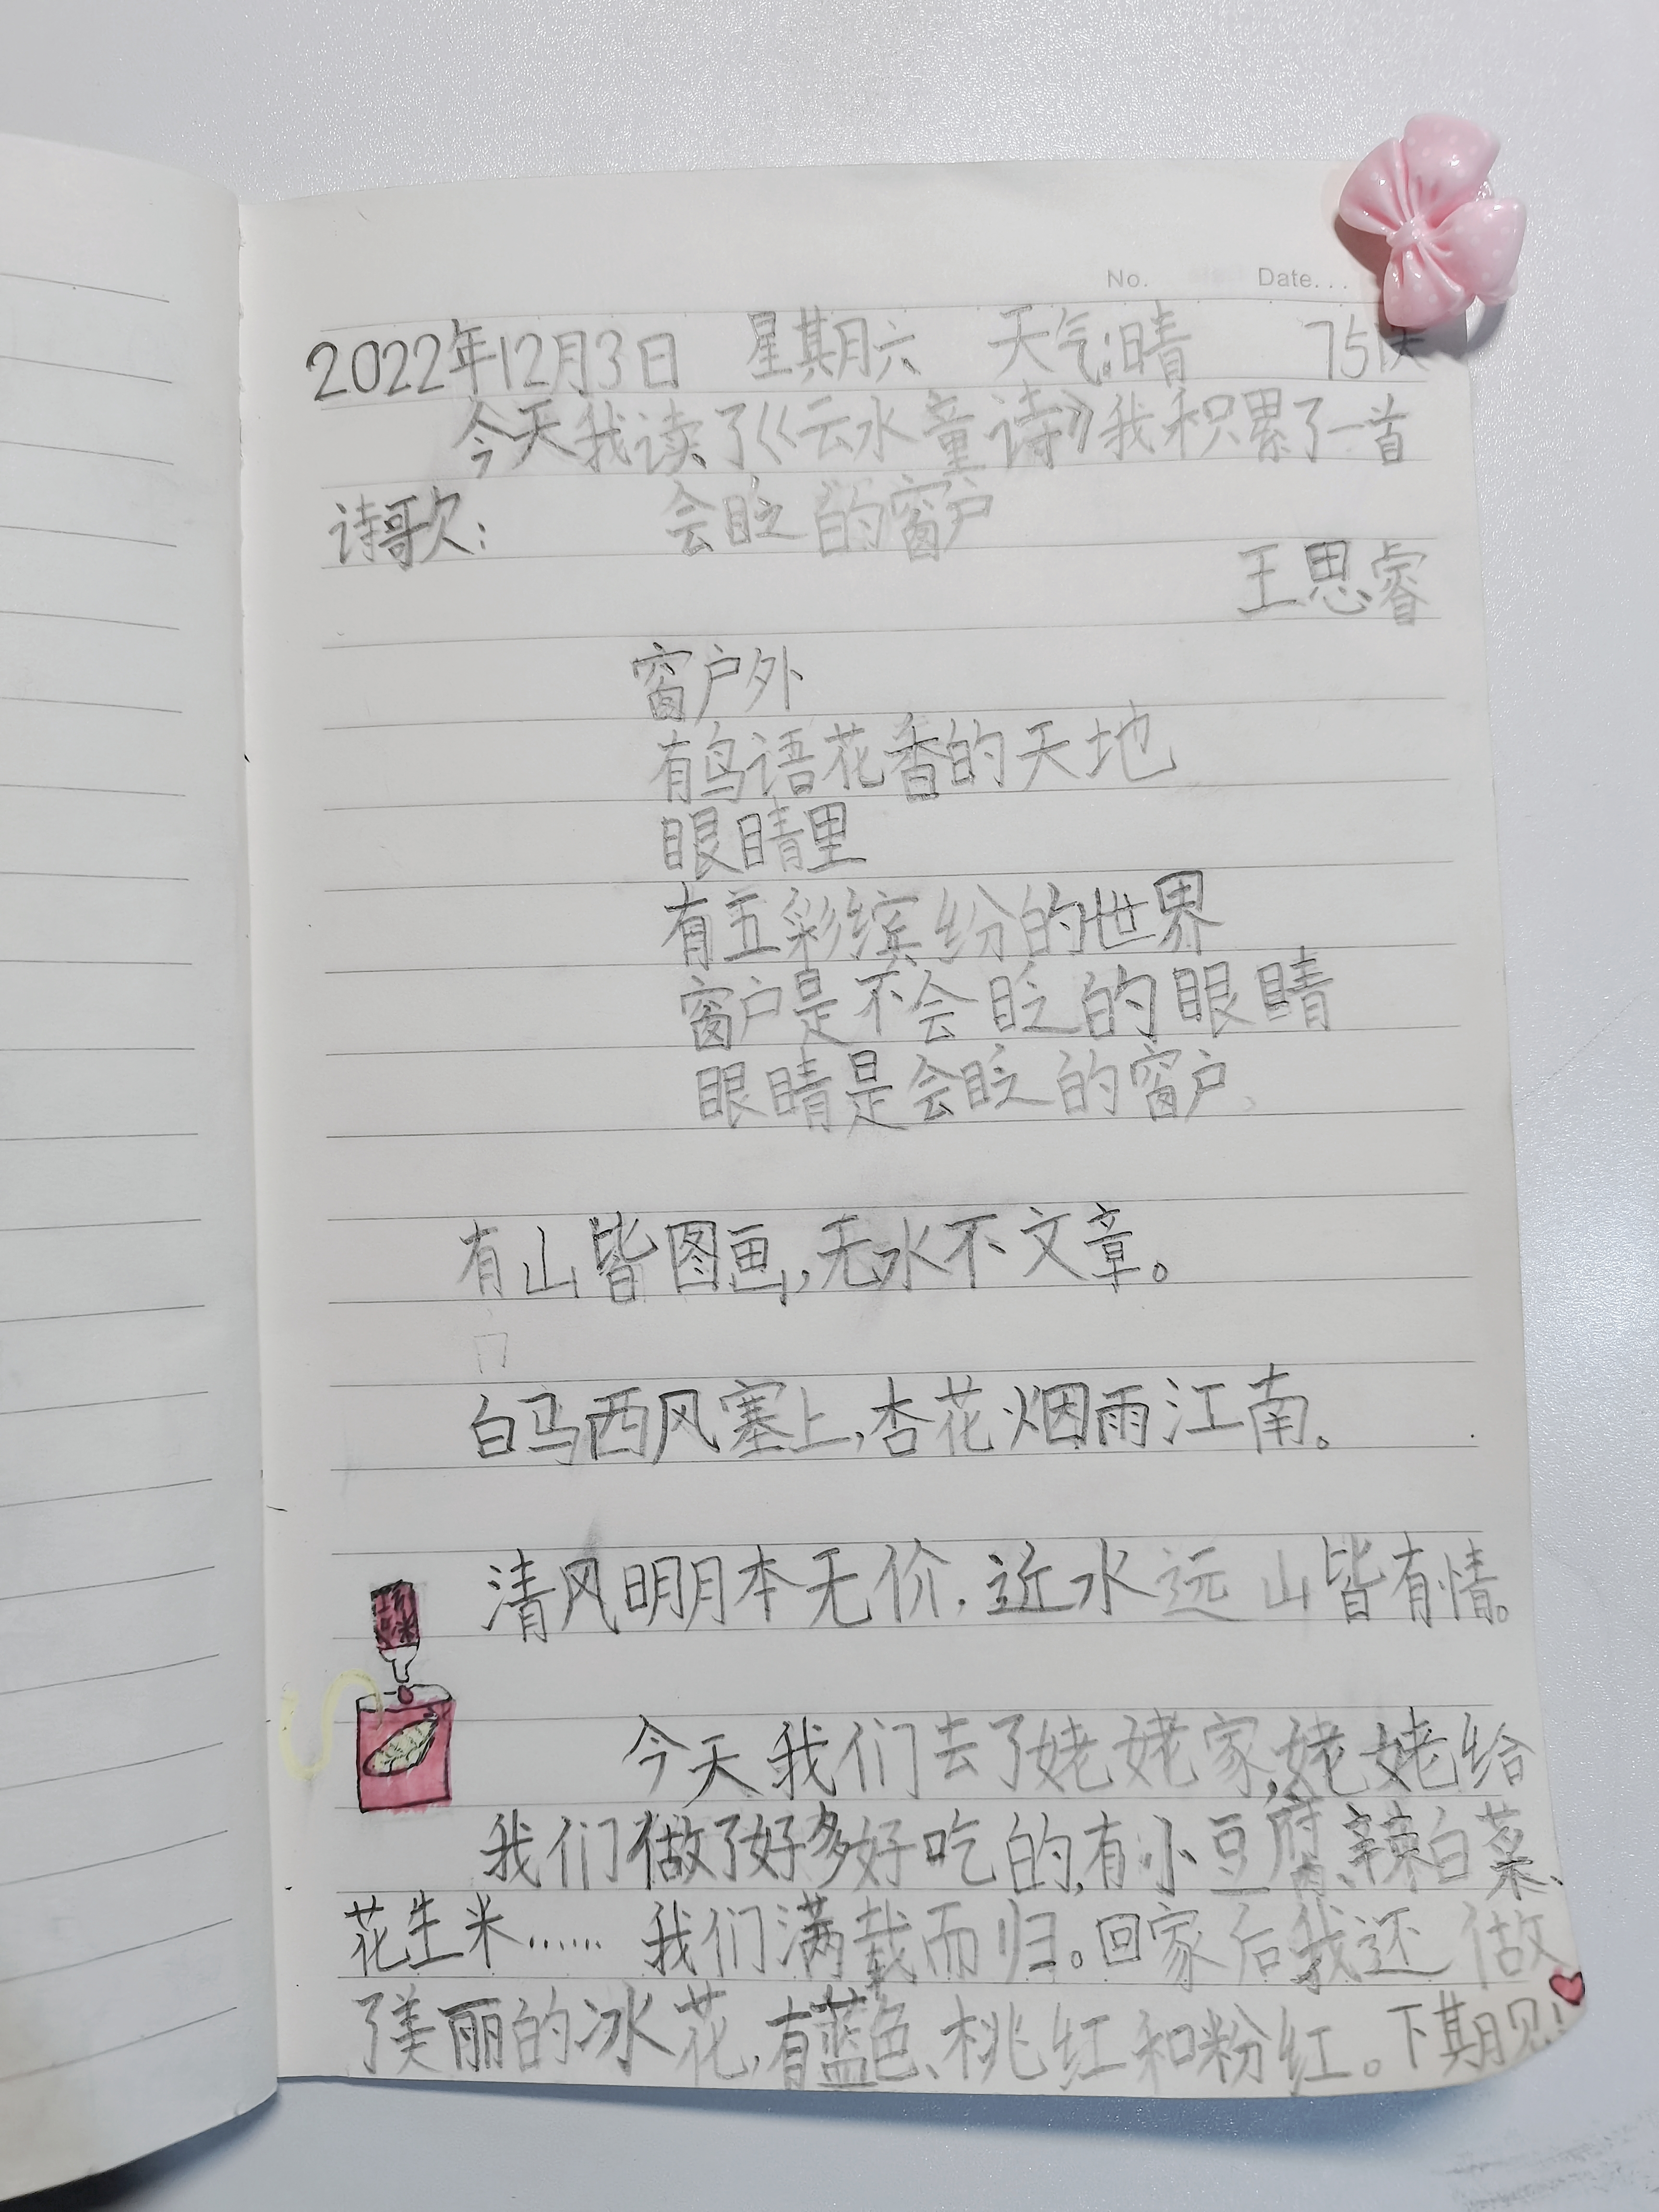 No. Date...
2022年12月3日 星期六 天气:晴 75天
今天我读了《云水童诗》我积累了一首
诗歌: 会眨的窗户
王思睿
窗户外
有鸟语花香的天地
眼睛里
有五彩缤纷的世界
窗户是不会眨的眼睛
眼睛是会眨的窗户
有山皆图画,无水不文章。
白马西风塞上,杏花烟雨江南。
清风明月本无价,近水远山皆有情。
今天我们去了姥姥家,姥姥给
我们做了好多好吃的,有小豆腐、辣白菜、
花生米…… 我们满载而归。回家后我还做
了美丽的冰花,有蓝色、桃红和粉红。下期见!